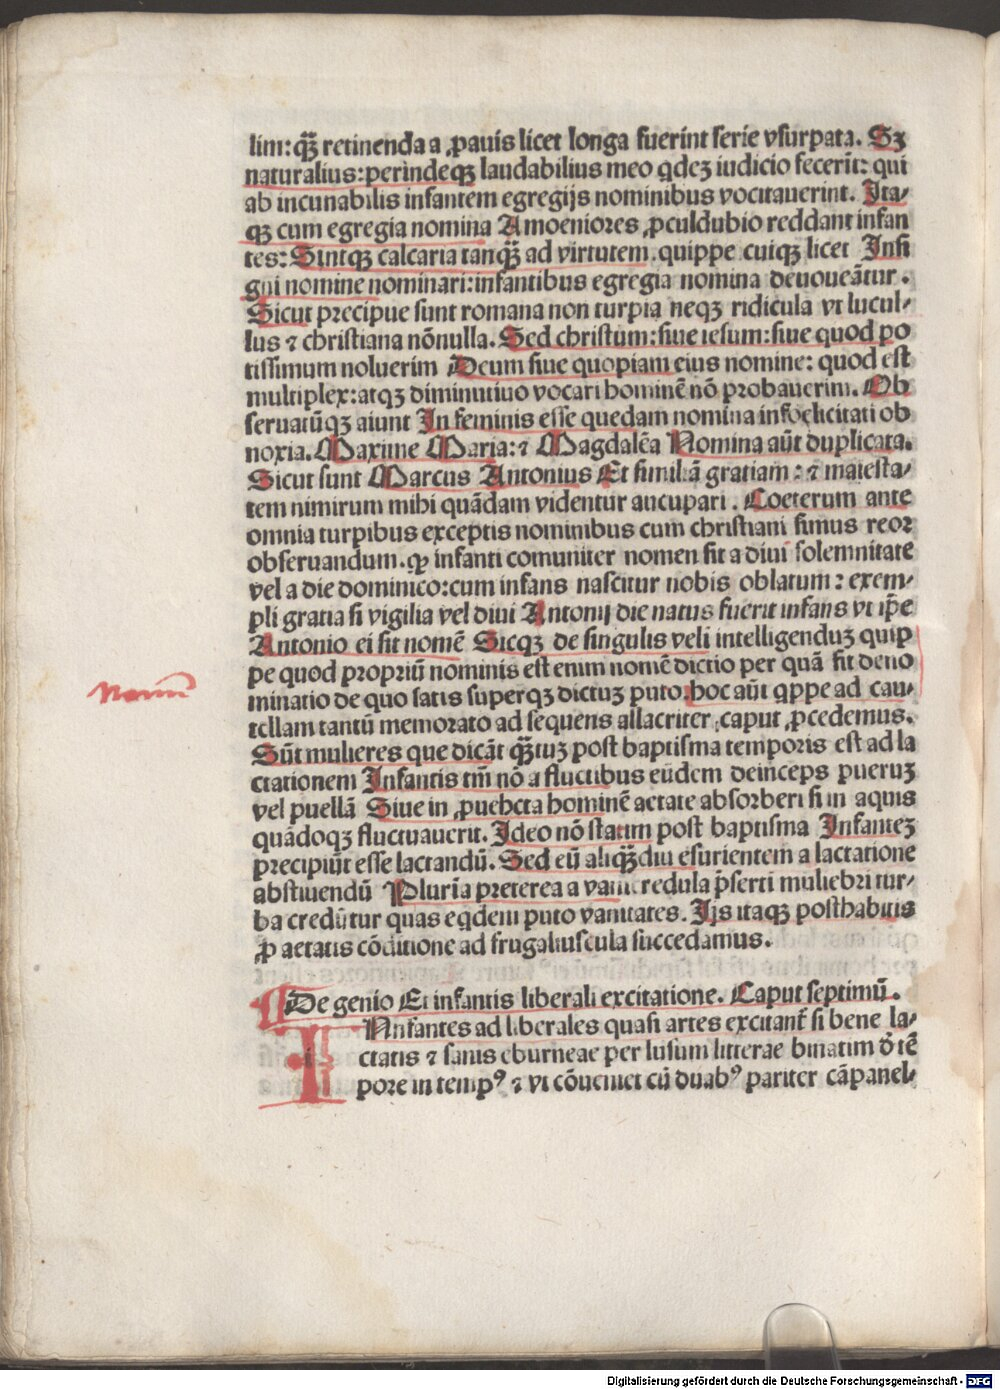 lim: qʒ̃ retinenda a ꝓauis licet longa fuerint serie vsurpata. Sʒ
naturalius: perindeqʒ laudabilius meo qdeʒ iudicio fecerĩt: qui
ab incunabilis infantem egregijs nominibus vocitauerint. Ita-
qʒ cum egregia nomina Amoeniores ꝓculdubio reddant infan
tes: Sintqʒ calcaria tanqʒ̃ ad virtutem. quippe cuiqʒ licet Insi
gni nomine nominari: infantibus egregia nomina deuoueãtur.
Sicut precipue sunt romana non turpia neqʒ ridicula vt lucul-
lus ⁊ christiana nõnulla. Sed christum: siue iesum: siue quod po
tissimum noluerim Deum siue quopiam eius nomine: quod est
multiplex: atqʒ diminutiuo vocari hominẽ nõ probauerim. Ob
seruatũqʒ aiunt In feminis esse quedam nomina infoelicitati ob
noxia. Maxime Maria: ⁊ Magdalẽa Nomina aũt duplicata.
Sicut sunt Marcus Antonius Et similiã gratiam: ⁊ maiesta-
tem nimirum mihi quãdam videntur aucupari. Coeterum ante
omnia turpibus exceptis nominibus cum christiani simus reor
obseruandum. ꝙ infanti comuniter nomen fit a diui solemnitate
vel a die dominico: cum infans nascitur nobis oblatum: exem-
pli gratia si vigilia vel diui Antonij die natus fuerit infans vt ip̃e
Antonio ei sit nomẽ Sicqʒ de singulis veli intelligenduʒ quip
pe quod propriũ nominis est enim nomẽ dictio per quã fit deno
minatio de quo satis superqʒ dictuʒ puto: hoc aũt qppe ad cau-
tellam tantũ memorato ad sequens allacriter caput ꝓcedemus.
Sũt mulieres que dicãt qʒ̃tuʒ post baptisma temporis est ad la
ctationem Infantis tm̃ nõ a fluctibus eũdem deinceps pueruʒ
vel puellã Siue in ꝓuehcta hominẽ aetate absorberi si in aquis
quãdoqʒ fluctuauerit. Ideo nõ statim post baptisma Infanteʒ
precipiũt esse lactandũ. Sed eũ aliqʒ̃diu esurientem a lactatione
abstiuendũ Plurĩa preterea a vanicredula p̃serti muliebri tur-
ba credũtur quas eqdem puto vanitates. Ijs itaqʒ posthabitis
ꝓ aetatis cõditione ad frugaliuscula succedamus.
De genio Et infantis liberali excitatione. Caput septimũ.
INnfantes ad liberales quasi artes excitant̃ si bene la-
ctatis ⁊ sanis eburneae per lusum litterae binatim ð tẽ
pore in tempꝰ ⁊ vt cõueniet cũ duabꝰ pariter cãpanel-
Nomen
Digitalisierung gefördert durch die Deutsche Forschungsgemeinschaft - DFG